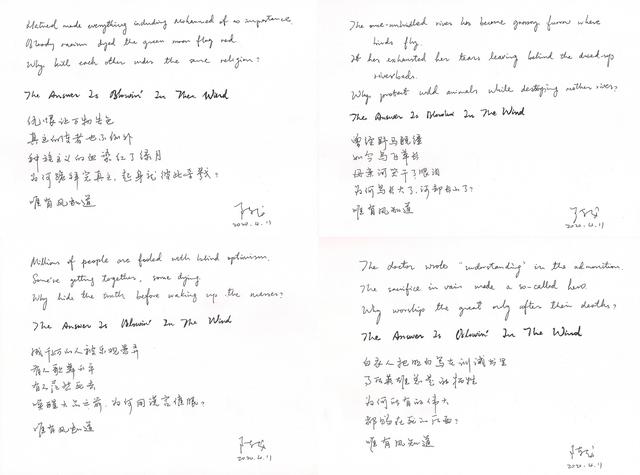 Hatred made everything including Mohammed of no importance.
Bloody racism dyed the green moon flag red.
Why kill each other under the same religion?
The Answer Is Blowin' In The Wind
仇恨让万物失色
真主的使者也不例外
种族主义的血染红了绿月
为何跪拜完真主，起身记彼此
唯有风知道
2020.4.11
The once-unbridled river has become grassy farm where
birds fly.
It has exhausted her tears leaving behind the dried-up
riverbeds.
Why protect wild animals while destroying mother rivers?
The Answer Is Blowin In The Wind
曾经野马脱缰
如今鸟飞草长
母亲河哭干了眼泪
为何鸟长大了，河却变小了？
唯有风知道
2020.4.11
Millions of people are fooled with blind optimism.
Some're getting together, some dying.
Why hide the truth before waking up the masses?
The Answer Is Blowin' In The Wind
成千万人被乐观愚弄
有人歌舞升平
有人茫然死去
唤醒大众之前，为何用谎言催眠？
唯有风知道
2020.4.11
The doctor wrote "understanding" in the admonition.
The sacrifice in vain made a so-called hero.
Why worship the great only after their deaths?
The Answer Is Blowin' In The Wind
白衣人把明白写在训诫书里
了成英雄的牺牲
为何所有的伟大
都留在死亡后面？
唯有风知道
2020.4.11